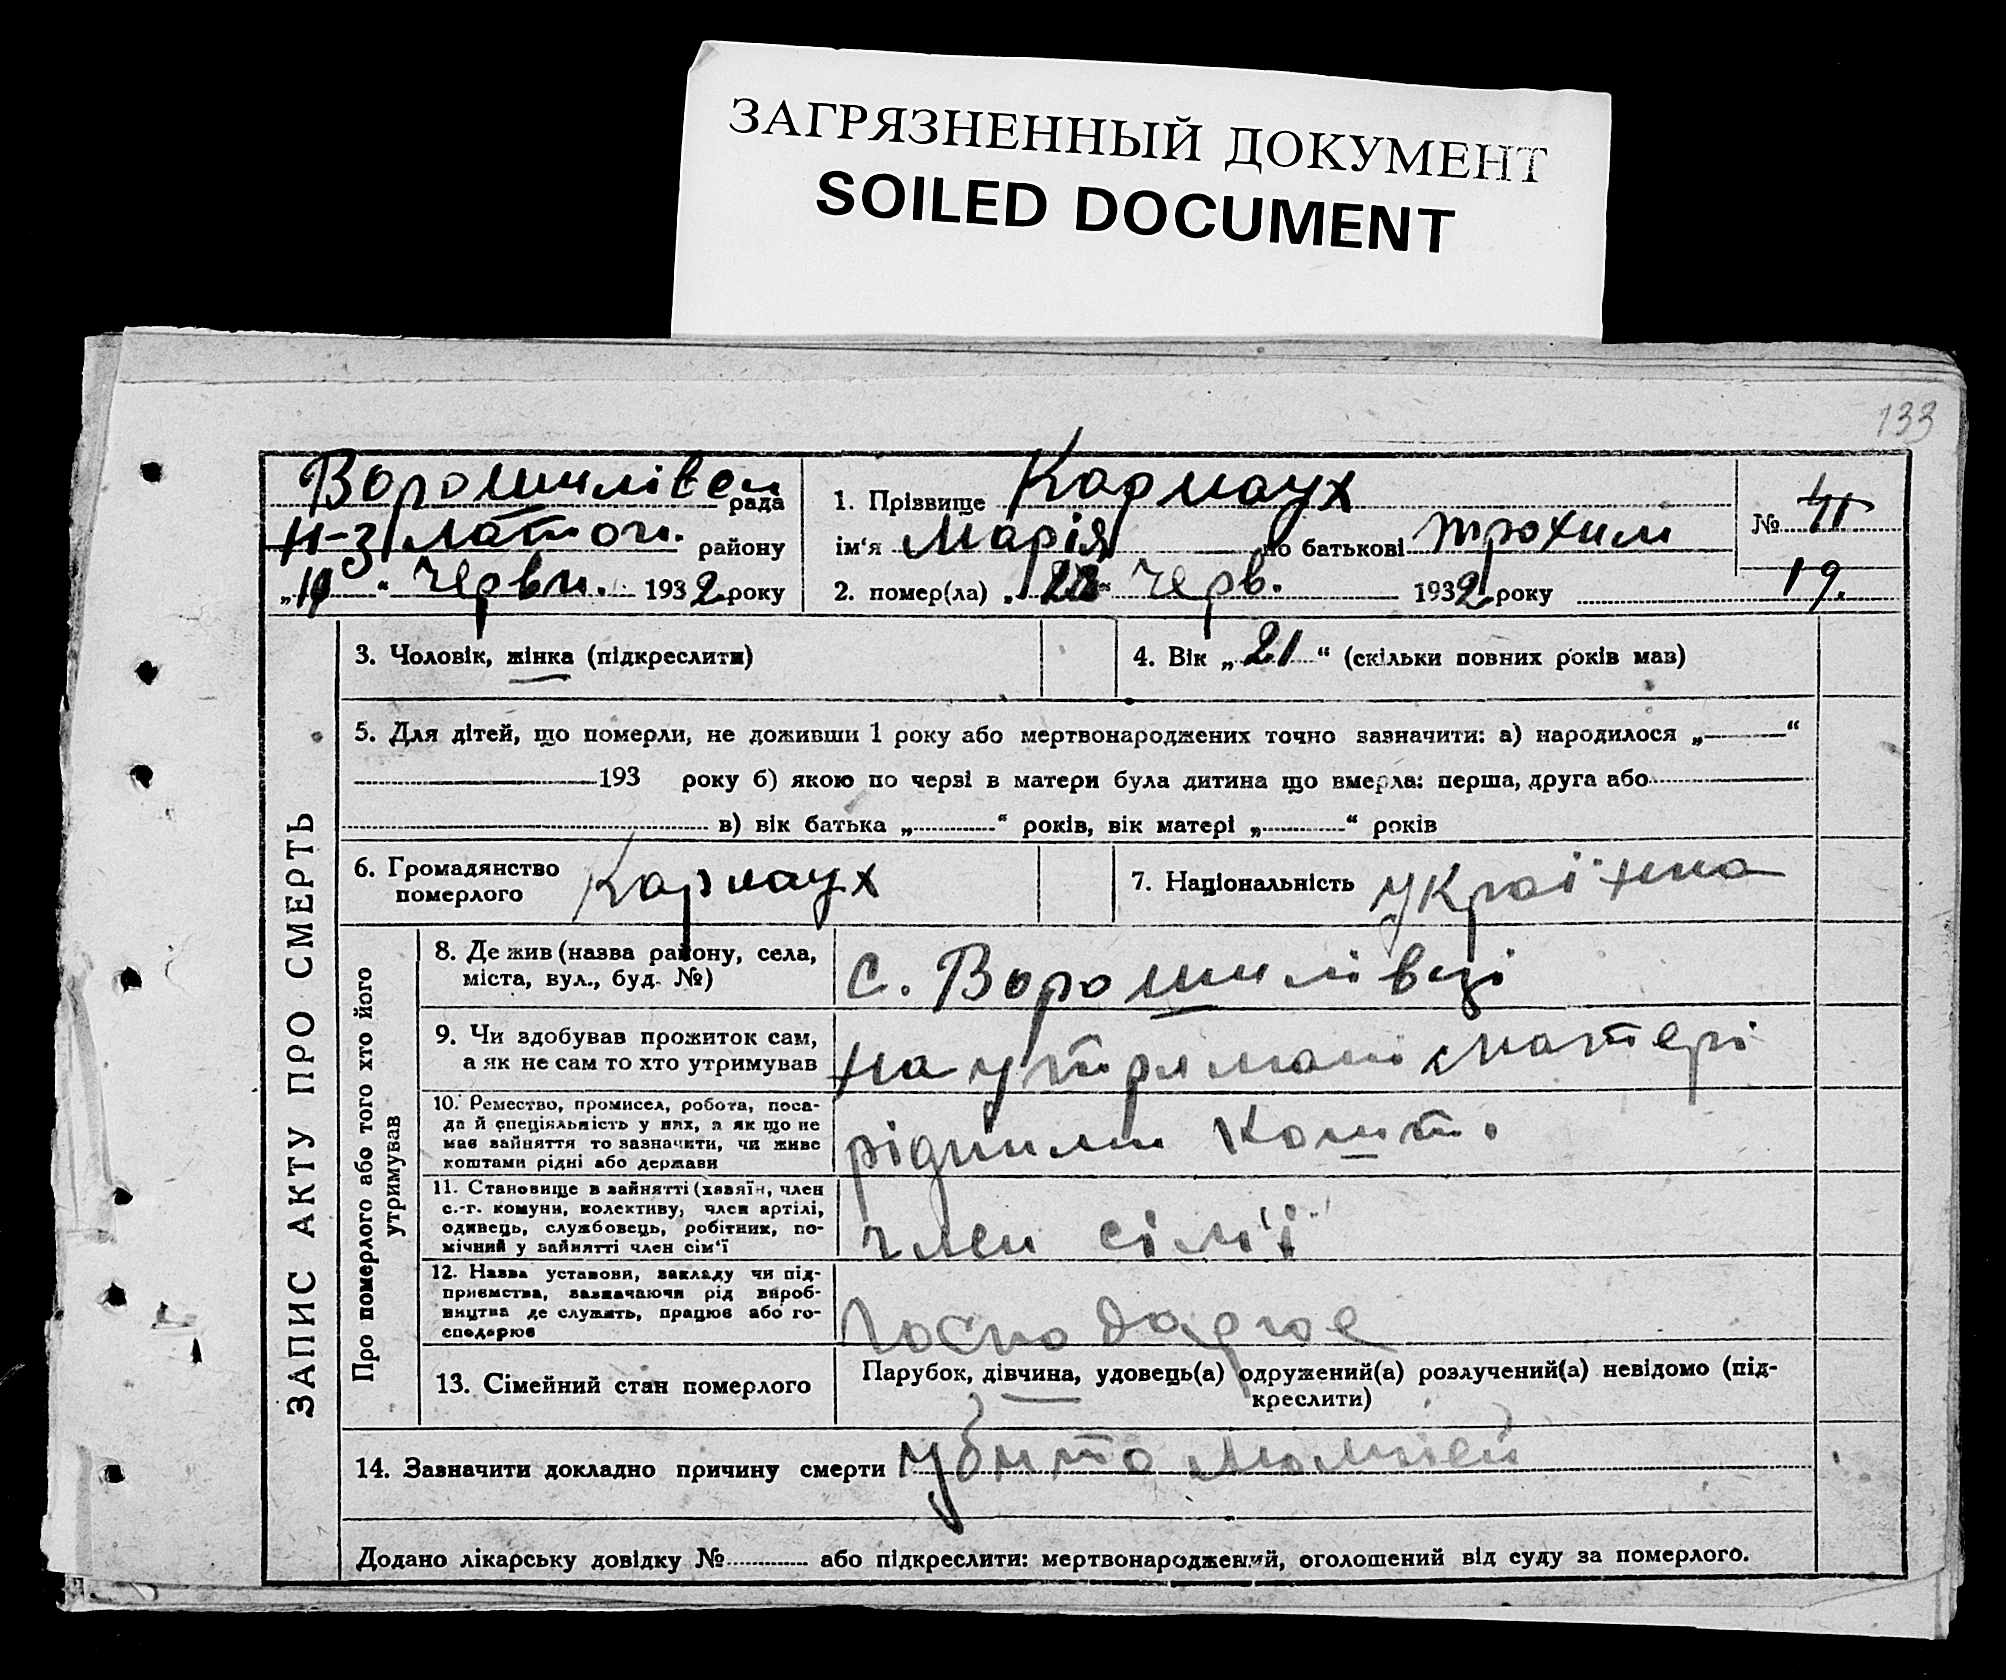 ЗАГРЯЗНЕННЫЙ ДОКУМЕНТ
SOILED DOCUMENT
133
Ворошилівец рада
н-златоп. району
червн. 1932 року
1. Прізвище Кармаух
ім‘я Марія по батькові Трохим
2. помер(ла) черв. 1932 року
№
19.
ЗАПИС АКТУ ПРО СМЕРТЬ
3. Чоловік, жінка (підкреслити)
4. Вік „ 21 “ (скільки повних років мав)
5. Для дітей, що померли, не доживши 1 року або мертвонароджених точно зазначити: а) народилося „ “
193 року б) якою по черзі в матери була дитина що вмерла: перша, друга або
в) вік батька „ “ років, вік матері „ “ років
6. Громадянство
померлого
Кармаух
7. Національність українка
Про померлого або того хто його
утримував
8. Де жив (назва району, села,
міста, вул., буд. №)
с. Ворошилівці
9. Чи здобував прожиток сам,
а як не сам то хто утримував
на утримані матері
10. Ремество, промисел, робота, поса-
да й спеціяльність у них, а як що не
мав зайняття то зазначити, чи живе
коштами рідні або держави
рідними кошт.
11. Становище в зайнятті (хазяїн, член
с.-г. комуни, колективу, член артілі,
одинець, службовець, робітник, по-
мічний у зайнятті член сім‘ї
член сімї
12. Назва установи, закладу чи під-
приємства, зазначаючи рід вироб-
ництва де служить, працює або го-
сподарює
господарює
13. Сімейний стан померлого
Парубок, дівчина, удовець(а) одружений(а) розлучений(а) невідомо (під-
креслити)
14. Зазначити докладно причину смерти убито молнієй
Додано лікарську довідку № або підкреслити: мертвонароджений, оголошений від суду за померлого.